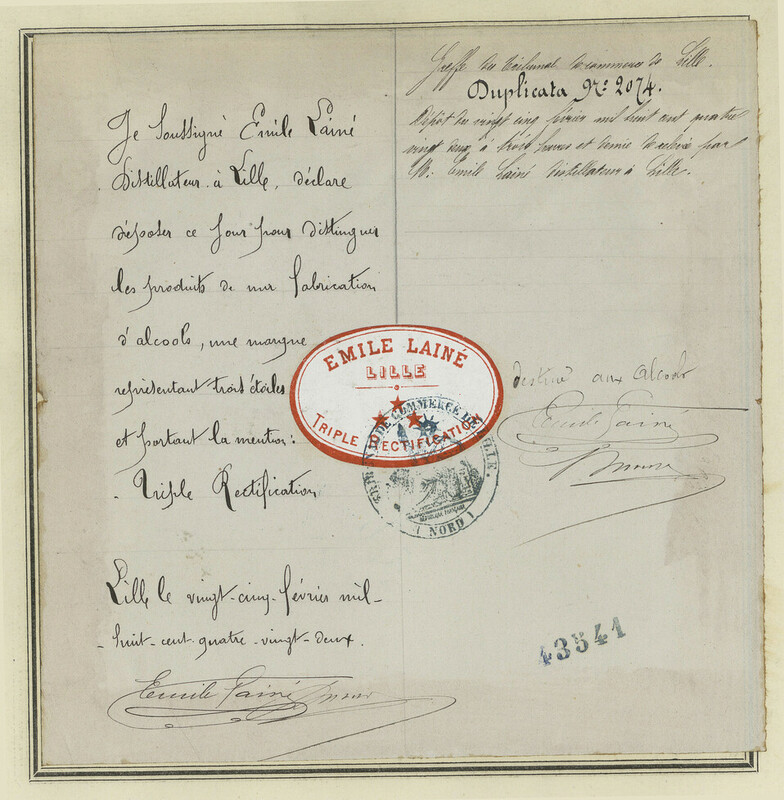 Je soussigné Emile Lainé
Distillateur à Lille, déclare
déposer ce jour pour distinguer
les produits de ma fabrication
d'alcools, une marque
représentant trois étoiles
et portant la mention:
Triple Rectification
Lille le vingt-cinq février mil-
-huit-cent-quatre-vingt-deux.
Emile Lainé
Greffe du tribunal de commerce de Lille.
Duplicata No. 2074.
Dépôt du vingt cinq février mil huit cent quatre
vingt deux, à trois heures et demie de relevée par
M. Emile Lainé distillateur à Lille.
EMILE LAINÉ
LILLE
TRIPLE RECTIFICATION
TRIBUNAL DE COMMERCE DE LILLE
RÉPUBLIQUE FRANÇAISE
( NORD )
destiné aux alcools
Emile Lainé
43541